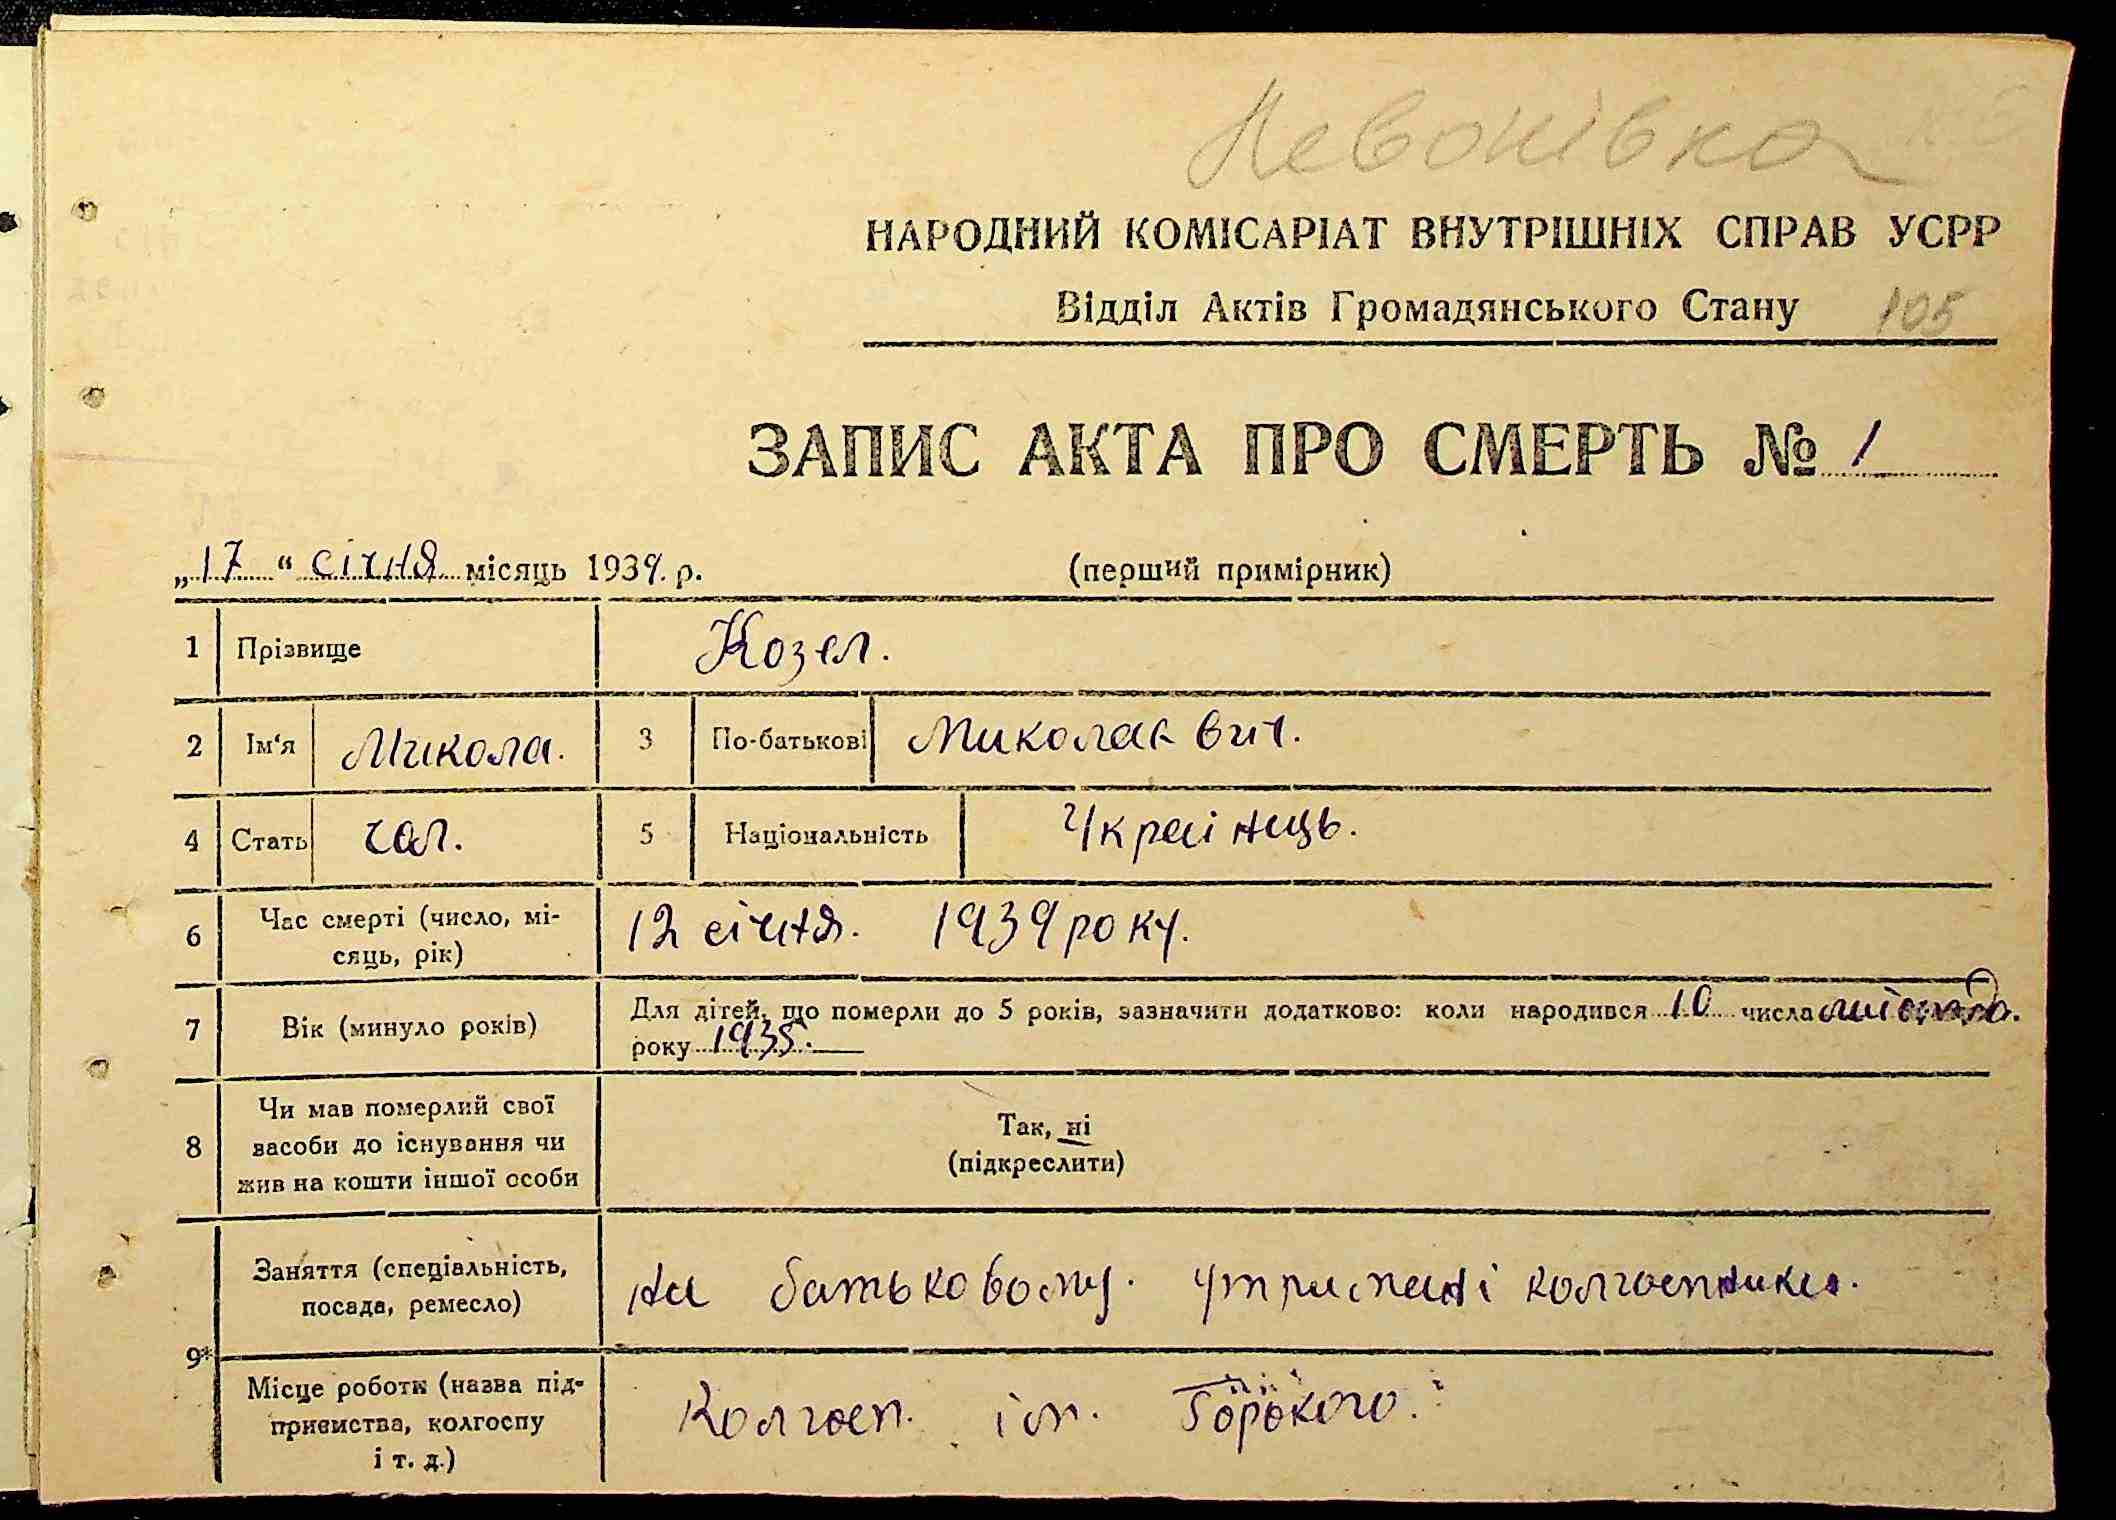 Левонівка
НАРОДНИЙ КОМІСАРІАТ ВНУТРІШНІХ СПРАВ УСРР
Відділ Актів Громадянського Стану 105
ЗАПИС АКТА ПРО СМЕРТЬ № 1
„17“ січня місяць 1939. р. (перший примірник)
1 Прізвище Козел.
2 Ім'я Микола. 3 По-батькові Миколаєвич.
4 Стать чол. 5 Національність Українець.
6 Час смерті (число, мі-
сяць, рік) 12 січня. 1939 року.
7 Вік (минуло років) Для дітей, що померли до 5 років, зазначити додатково: коли народився 10 числа місяця.
року 1935.
8 Чи мав померлий свої
засоби до існування чи
жив на кошти іншої особи
Так, ні
(підкреслити)
9* Заняття (спеціальність,
посада, ремесло) на батьковому. утримані колгоспника.
Місце роботи (назва під-
приємства, колгоспу
і т. д.)
Колгосп. ім. Горького.